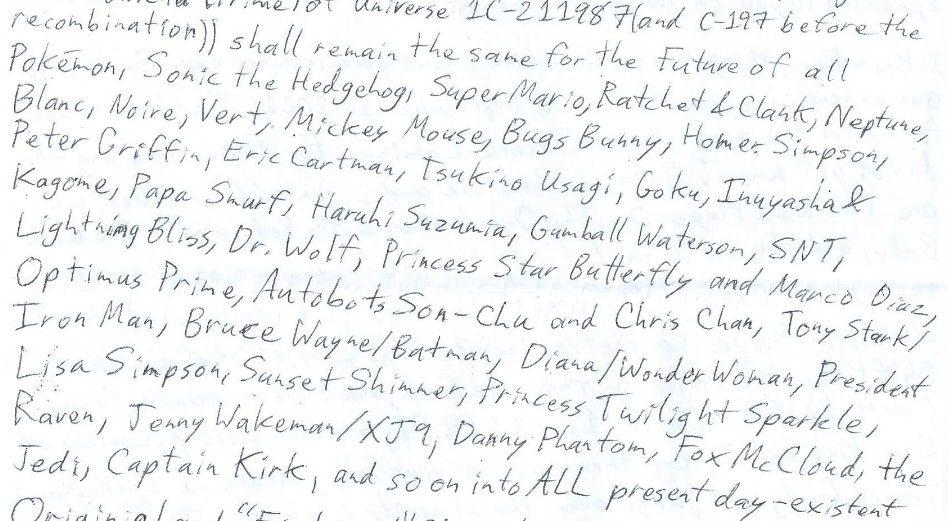 Universe 1C-211987(and C-197 before the
recombination)) shall remain the same for the Future of all
Pokémon, Sonic the Hedgehog, Super Mario, Ratchet & Clank, Neptune,
Blanc, Noire, Vert, Mickey Mouse, Bugs Bunny, Homer Simpson,
Peter Griffin, Eric Cartman, Tsukino Usagi, Goku, Inuyasha &
Kagome, Papa Smurf, Haruhi Suzumia, Gumball Waterson, SNT,
Lightning Bliss, Dr. Wolf, Princess Star Butterfly and Marco Diaz,
Optimus Prime, Autobots Son-Chu and Chris Chan, Tony Stark/
Iron Man, Bruce Wayne/Batman, Diana/Wonder Woman, President
Lisa Simpson, Sunset Shimmer, Princess Twilight Sparkle,
Raven, Jenny Wakeman/XJ9, Danny Phantom, Fox McCloud, the
Jedi, Captain Kirk, and so on into ALL present day-existent